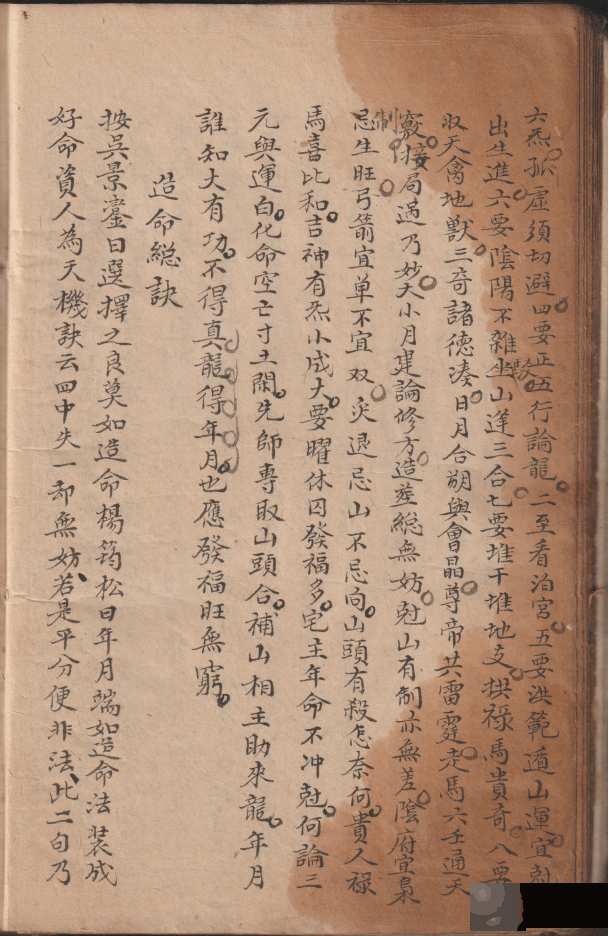 六炁孤虛須切避四要正五行論龍二至看泊宮五要洪範遁山運宜尅
出生進六要陰陽不雜坐山逢三合七要堆干堆地支拱祿馬貴奇八要
取天禽地獸三奇諸德湊日月合朔與會晶尊帝共雷霆走馬六壬通天
竅接局遇乃妙大小月建論修方造塟總無妨尅山有制亦無差陰府宜梟
制
忌生旺弓箭宜单不宜双災退忌山不忌向山頭有殺怎奈何貴人祿
馬喜比和吉神有炁小成大要曜休囚發福多宅主年命不冲尅何論三
元與運白化命空亡寸土閑先師專取山頭合補山相主助來龍年月
誰知大有功不得真龍得年月也應發福旺無窮
造命總訣
按吳景鸞曰選擇之良莫如造命楊筠松曰年月端如造命法裝成
好命資人為天機訣云四中失一却無妨若是平分便非法此二句乃